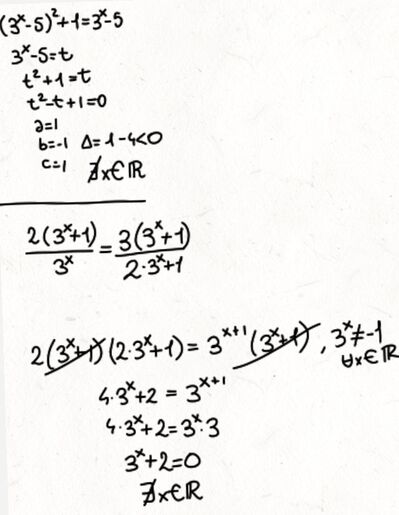 (3ˣ-5)²+1=3ˣ-5
3ˣ-5=t
t²+1=t
t²-t+1=0
a=1
b=-1 Δ=1-4<0
c=1 ∄x∈ℝ
2(3ˣ+1)/3ˣ = 3(3ˣ+1)/(2·3ˣ+1)
2(3ˣ+1)(2·3ˣ+1)=3ˣ⁺¹(3ˣ+1), 3ˣ≠-1
∀x∈ℝ
4·3ˣ+2=3ˣ⁺¹
4·3ˣ+2=3ˣ·3
3ˣ+2=0
∄x∈ℝ